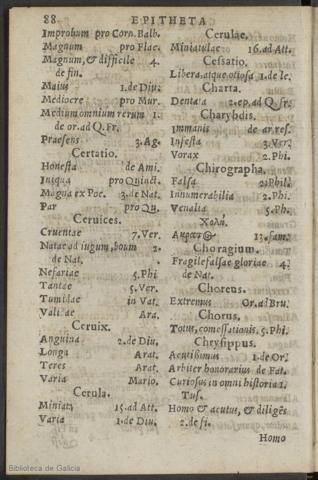 88 EPITHETA
Improbum pro Corn. Balb.
Magnum pro Flac.
Magnum, & difficile 4.
de fin.
Maius 1. de Diu.
Mediocre pro Mur.
Medium omnium rerum 1.
de or. ad Q. Fr.
Praesens 3. Ag.
Certatio.
Honesta de Ami.
Iniqua pro Quinct.
Magna ex Poe. 3. de Nat.
Par pro Qu.
Ceruices.
Cruentae 7. Ver.
Natae ad iugum, boum 2.
de Nat.
Nefariae 5. Phi
Tantae 5. Ver.
Tumidae in Vat.
Validae Ara.
Ceruix.
Anguina 2. de Diu.
Longa Arat.
Teres Arat.
Varia Mario.
Cerula.
Miniata 15. ad Att.
Varia 1. de Diu.
Cerulae.
Miniatulae 16. ad Att.
Cessatio.
Libera atque otiosa 1. de le.
Charta.
Dentata 2. ep. ad Q. Fr.
Charybdis.
Immanis de ar. res.
Infesta 3. Ver.
Vorax 2. Phi.
Chirographa.
Falsa 2. Phil.
Innumerabilia 2. Phi.
Venalia 5. Ph.
Χολή.
13. fam.
Choragium.
Fragile falsae gloriae 4.
de Nat.
Choreus.
Extremus Or. ad Bru.
Chorus.
Totus, comessationis. 5. Phi.
Chrysippus.
Acutissimus 1. de Or.
Arbiter honorarius de Fat.
Curiosus in omni historia 1.
Tus.
Homo & acutus, & diligēs
2. de fi.
Homo
Biblioteca de Galicia